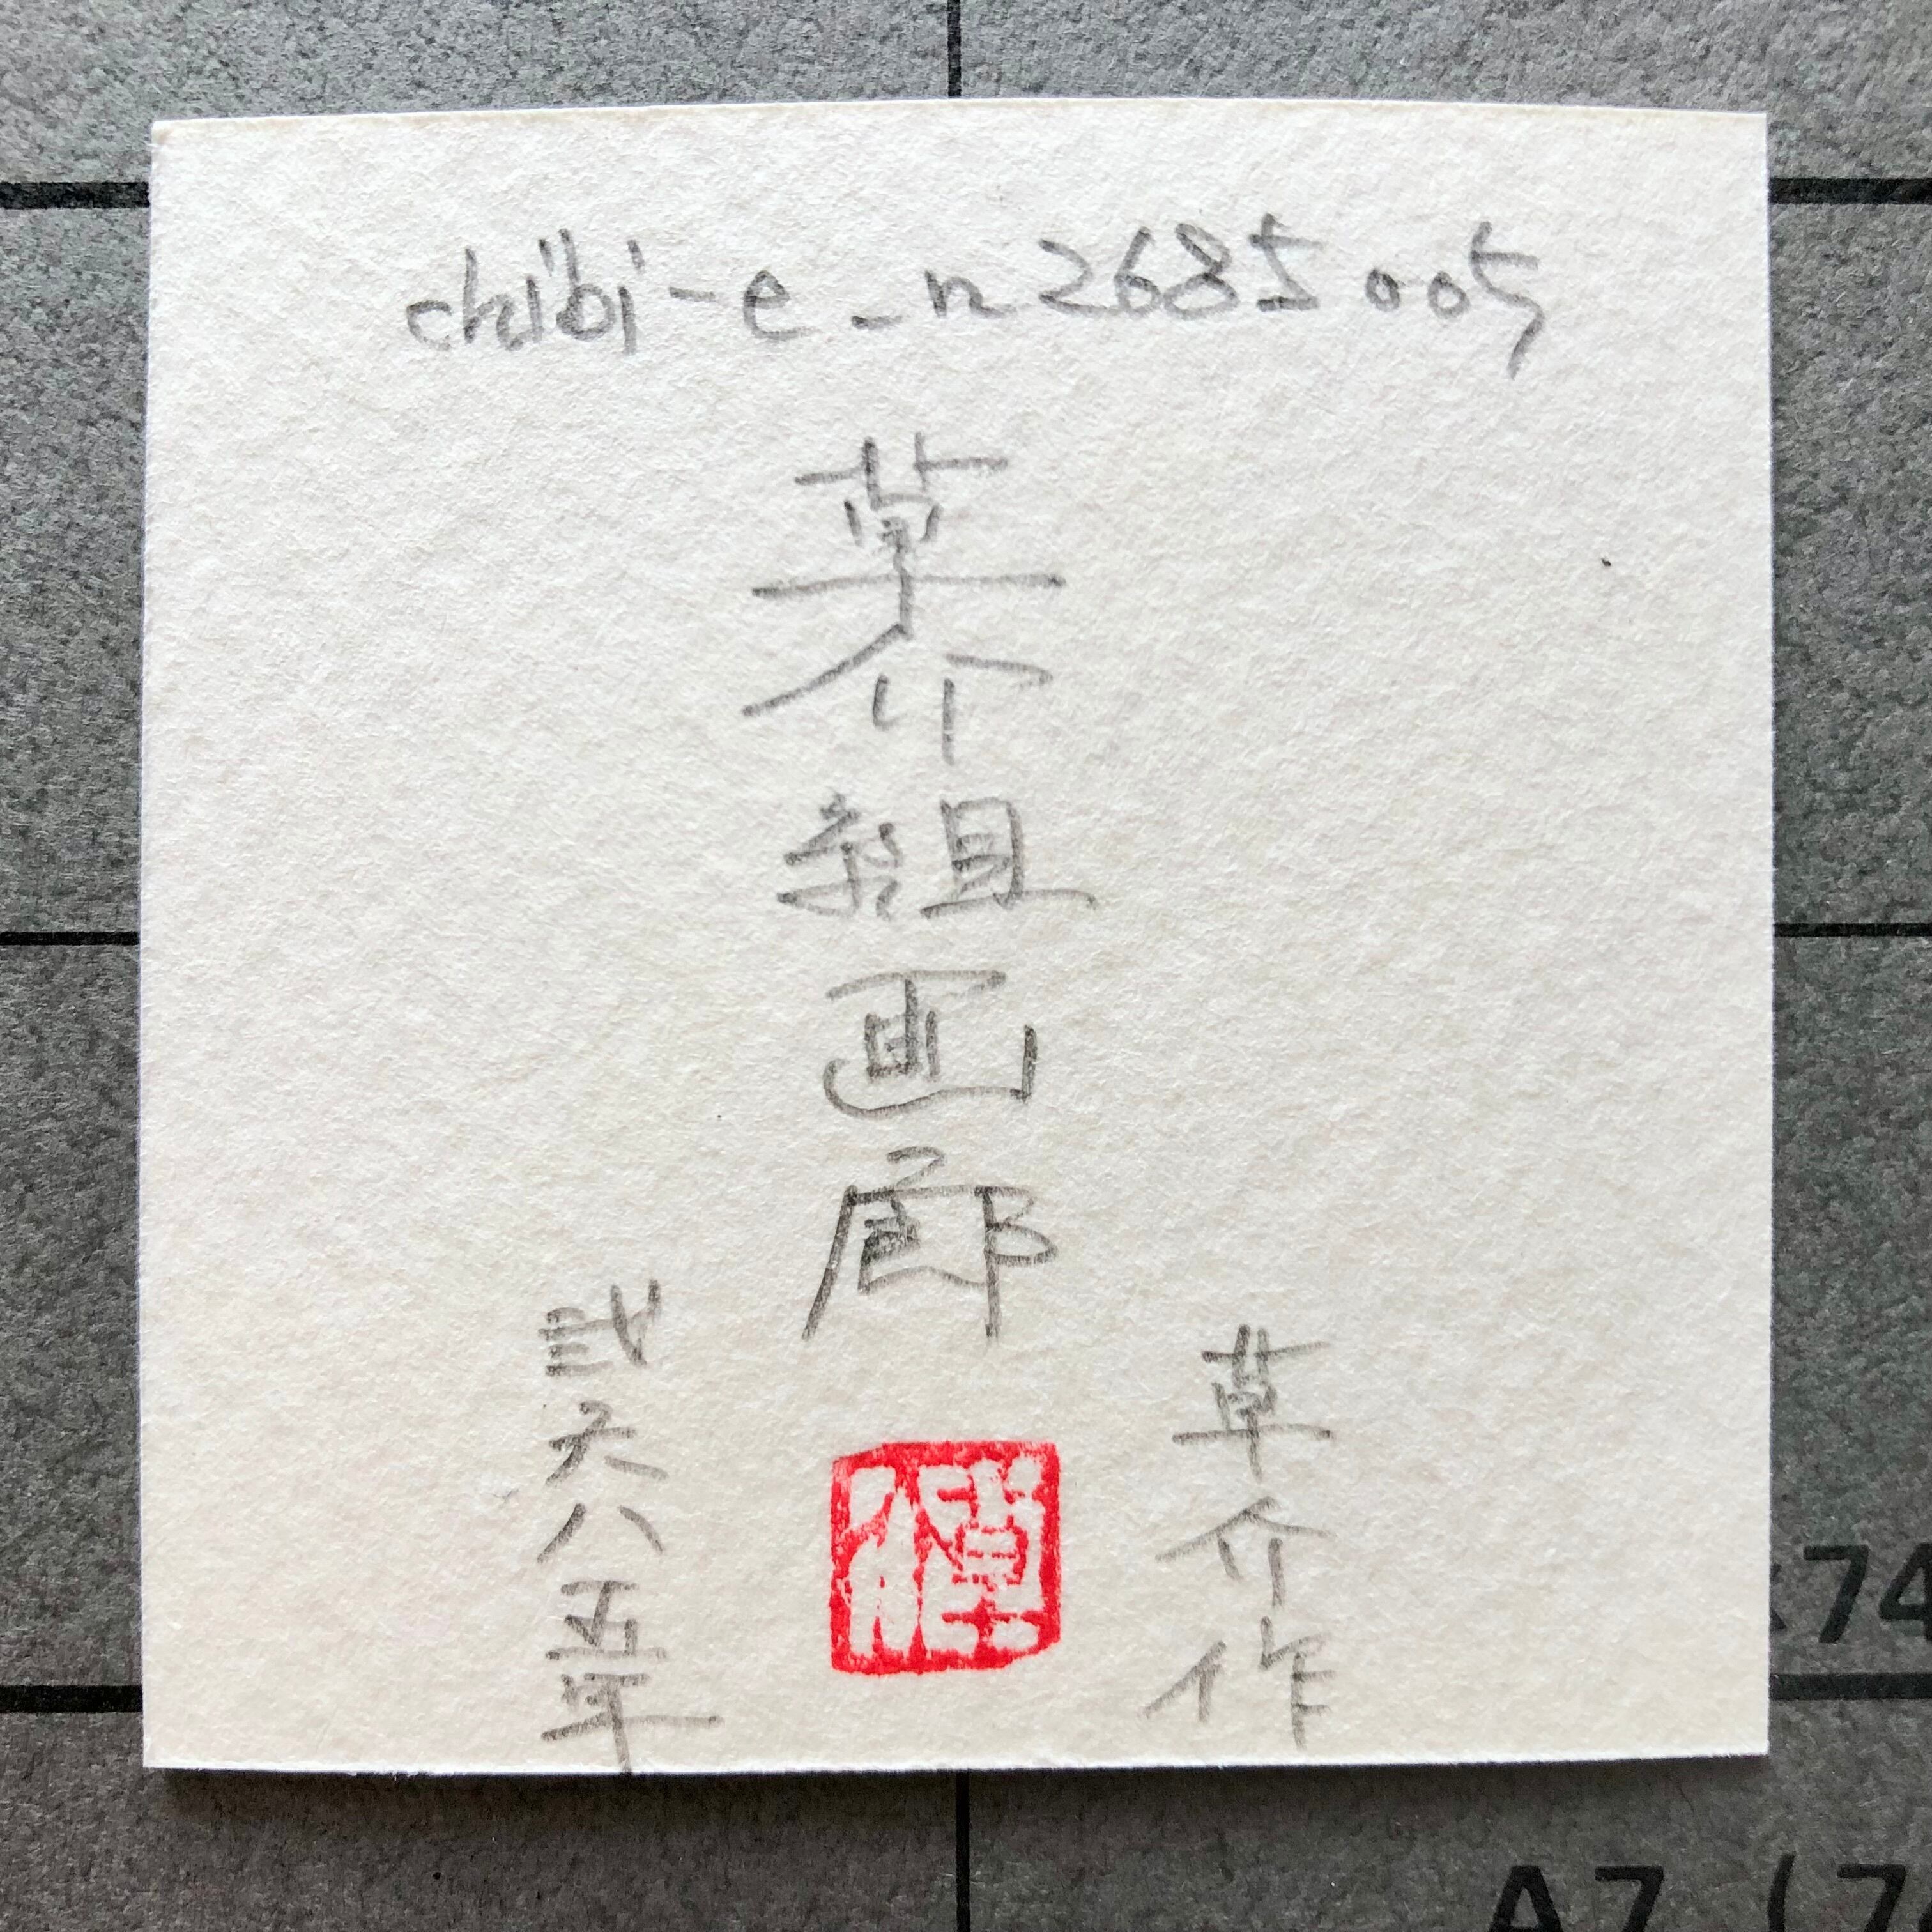 chibi-e_n2685005
草介組画廊
草介作
弐六八五年
74
A7 (7